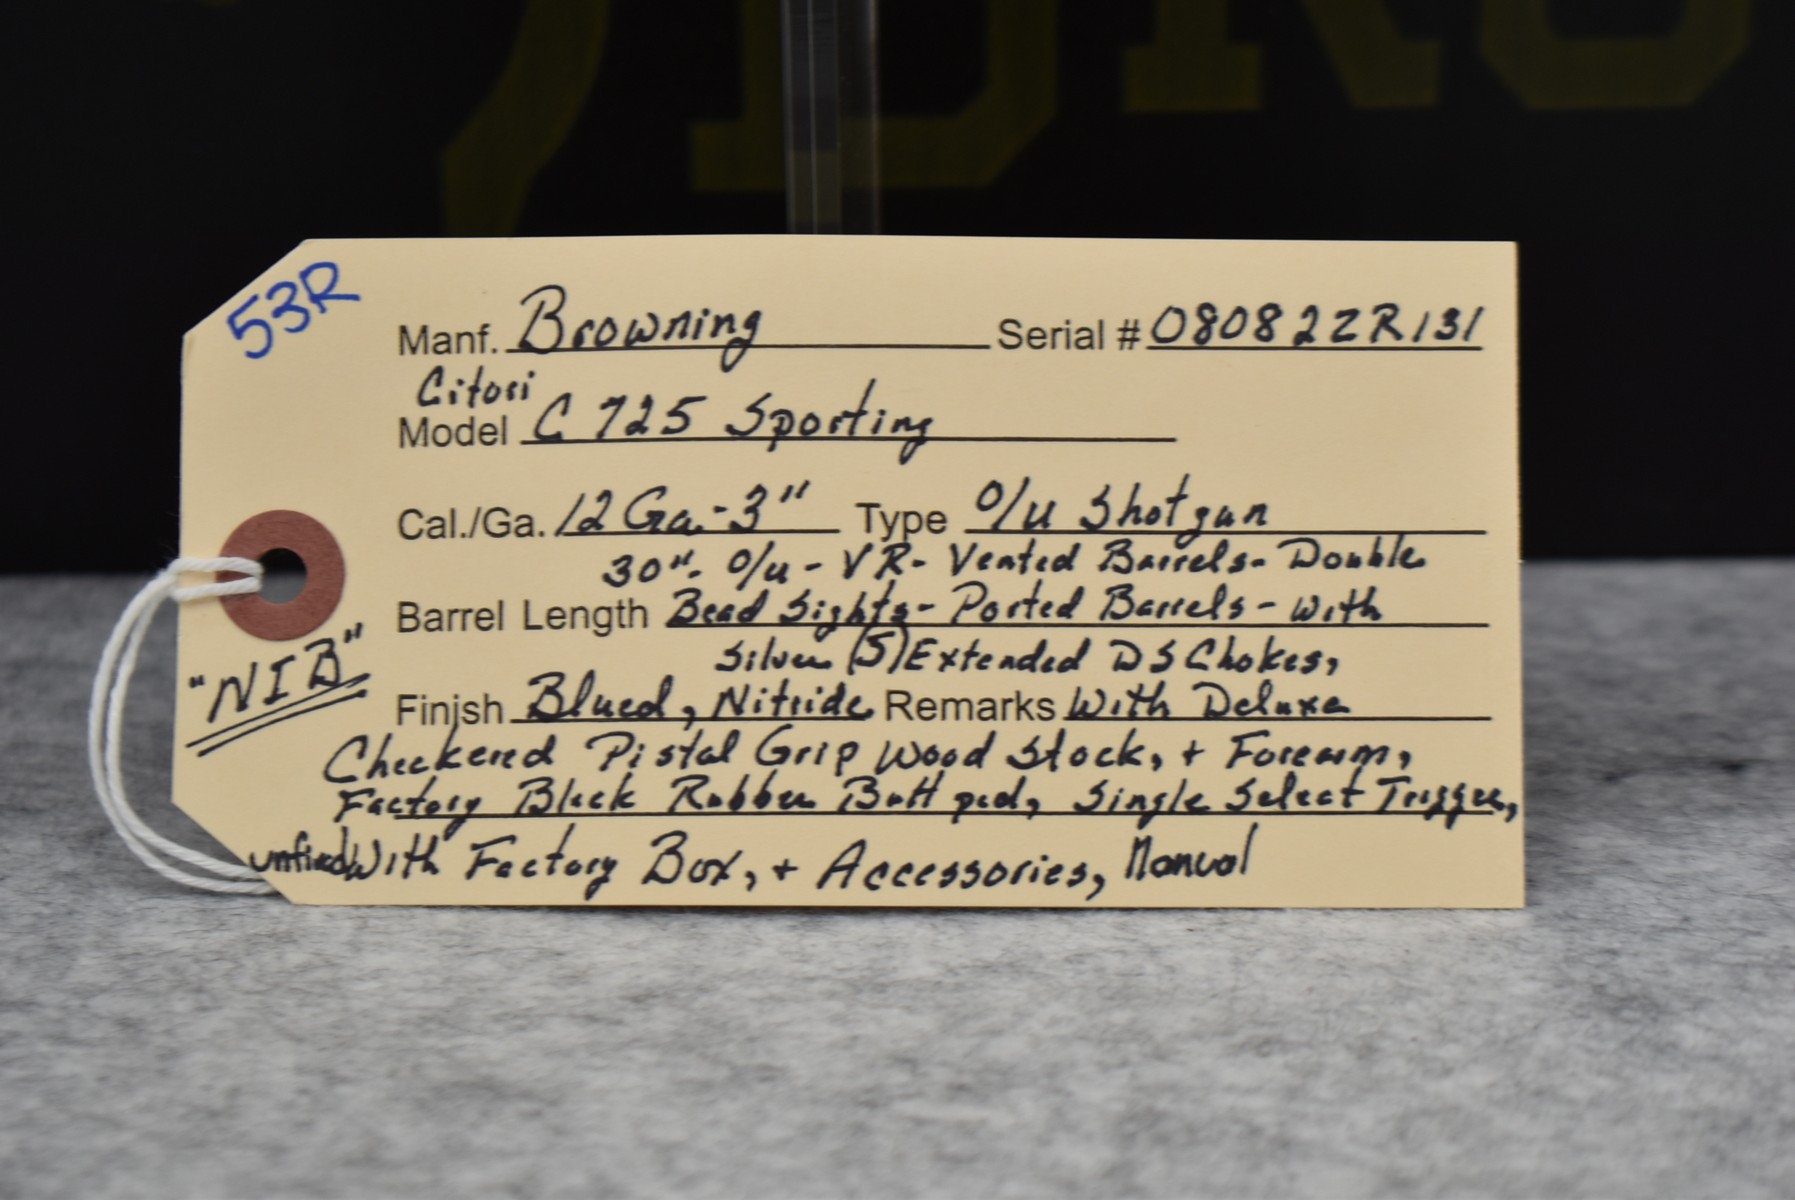 53R
Manf. Browning Serial # 08082ZR131
Citori
Model C 725 Sporting
Cal./Ga. 12 Ga.-3" Type O/U Shotgun
30"- O/U - VR- Vented Barrels- Double
Barrel Length Bead Sights- Ported Barrels - with
Silver (5) Extended DS Chokes,
"NIB"
Finish Blued, Nitride Remarks With Deluxe
Checkered Pistal Grip Wood Stock, + Forearm,
Factory Black Rubber Butt pad, Single Select Trigger,
unfired With Factory Box, + Accessories, Manual